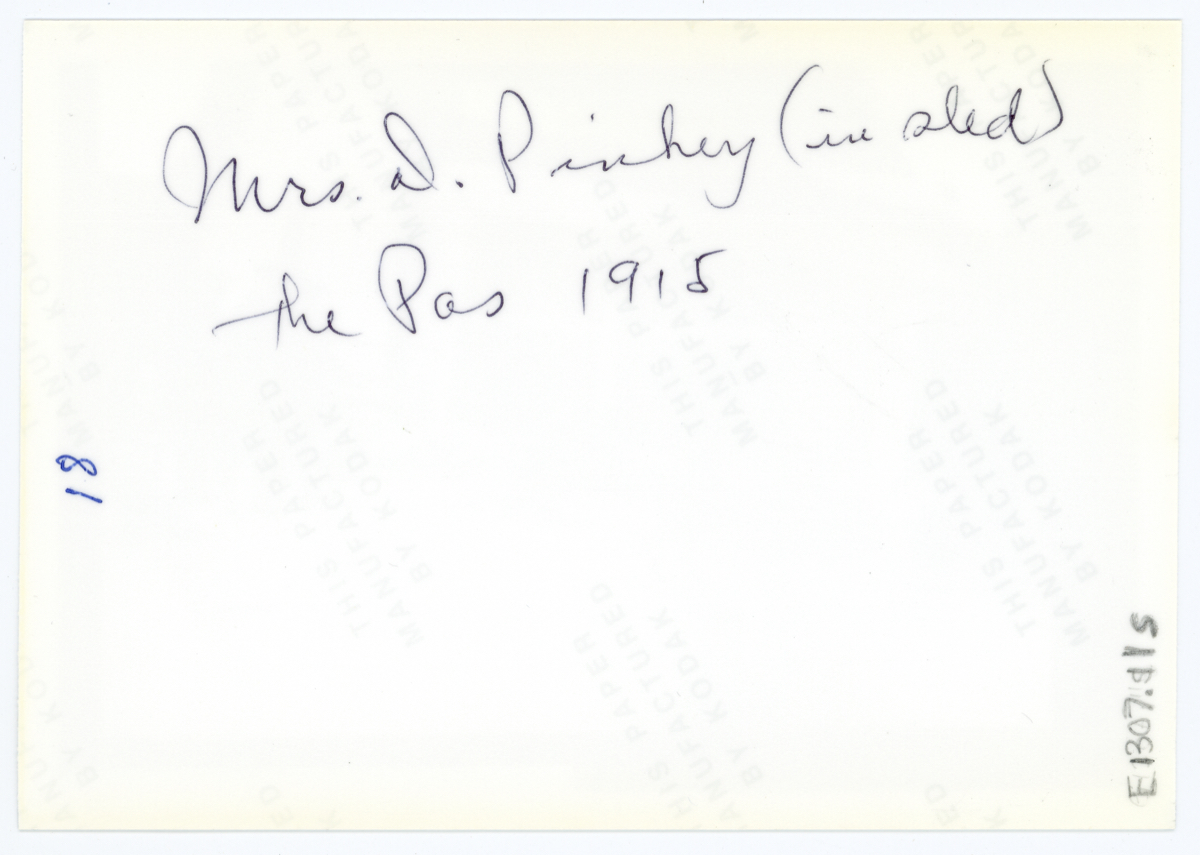 Mrs. D. Pinkery (in sled)
the Pas 1915
18
THIS PAPER
MANUFACTURED
BY KODAK